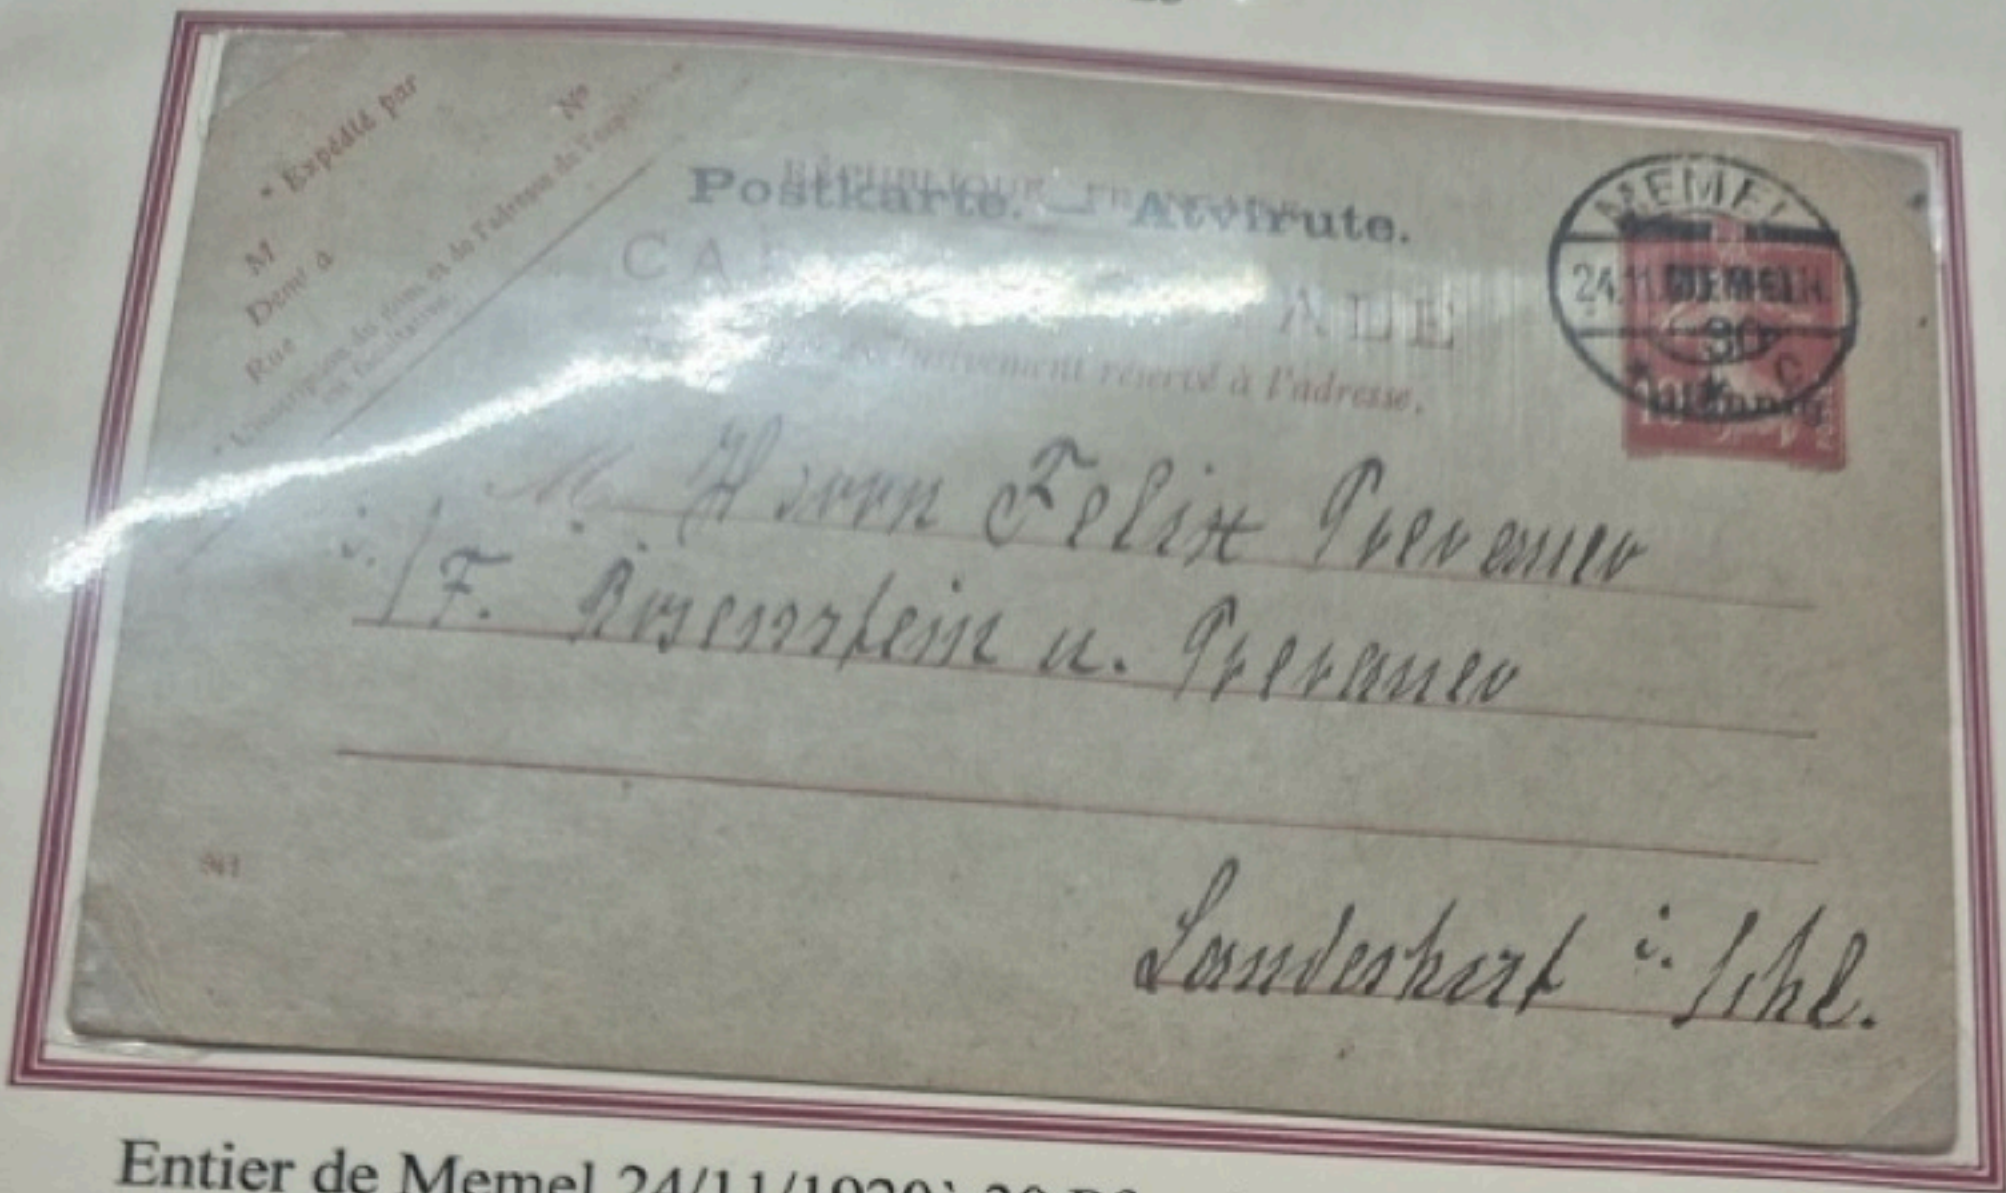 * Expédié par
Nº
M
Demt à
Rue
* L'inscription du nom et de l'adresse de
est facultative.
RÉPUBLIQUE
Postkarte. — Atvirute.
CA ALE
exclusivement réservé à l'adresse.
MEMEL
24.11.
MEMEL
30
Pfennig
c
M. Herrn Felix Prerauer
i./F. Rosenstein u. Prerauer
Landeshut i. Schl.
Entier de Memel 24/11/1920 à